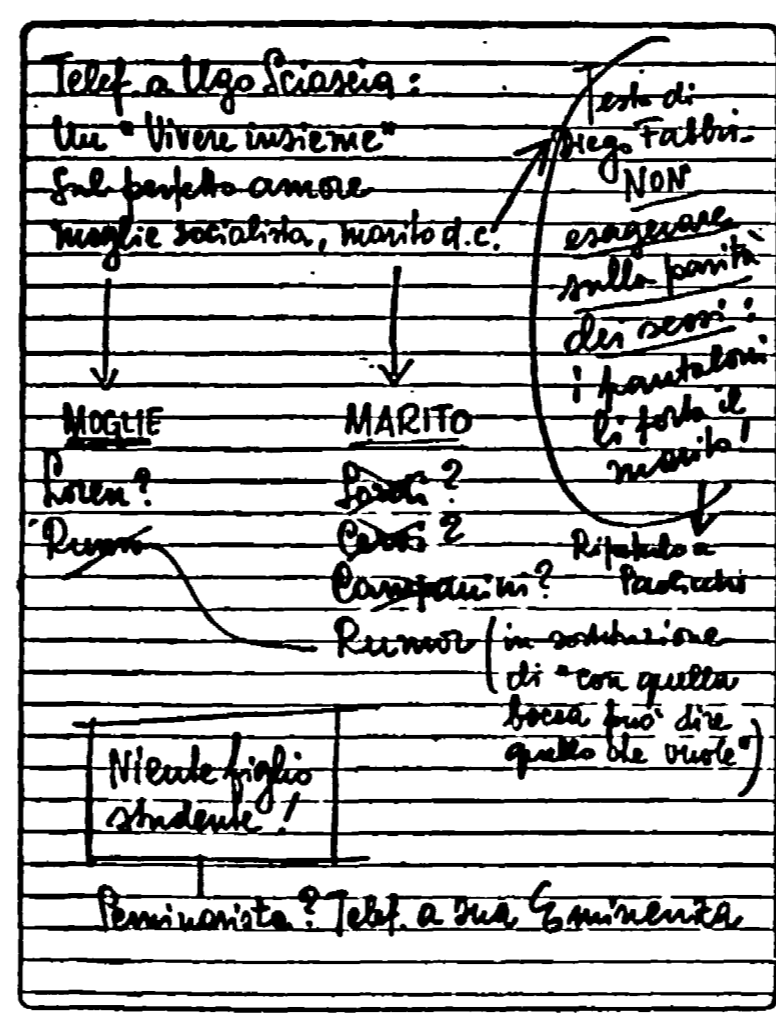 Telef. a Ugo Sciascia:
Un "Vivere insieme"
sul perfetto amore
moglie socialista, marito d.c.
Testo di
Diego Fabbri.
NON
esagerare
sulla parità
dei sessi:
i pantaloni
li porta il
marito!
Ripeterlo a
Paolicchi
MOGLIE
Loren?
Rumor
MARITO
Sordi?
Cervi?
Campanini?
Rumor (in sostituzione
di "con quella
bocca può dire
quello che vuole")
Niente figlio
studente!
Seminarista? Telef. a Sua Eminenza